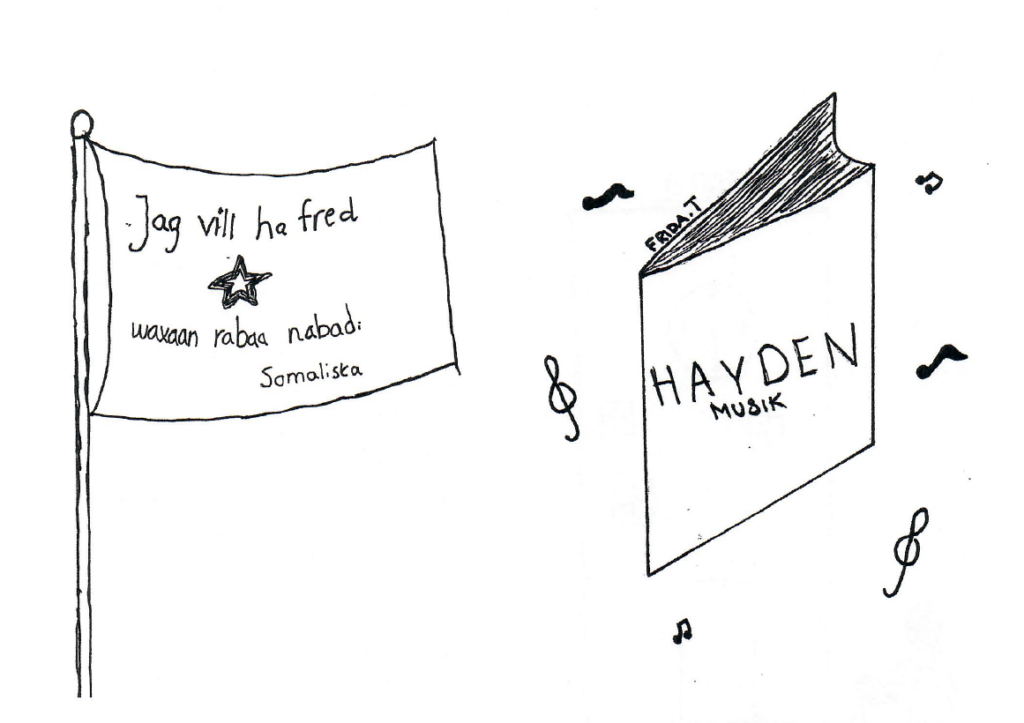 Jag vill ha fred
waxaan rabaa nabad:
Somaliska
FRIDA.T
HAYDEN
MUSIK